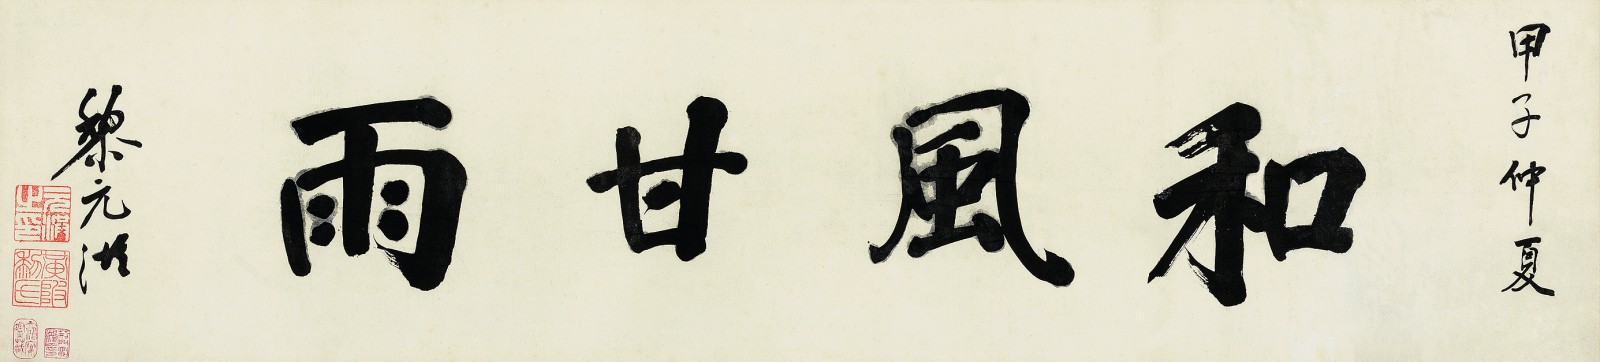 甲子仲夏
和風甘雨
黎元洪